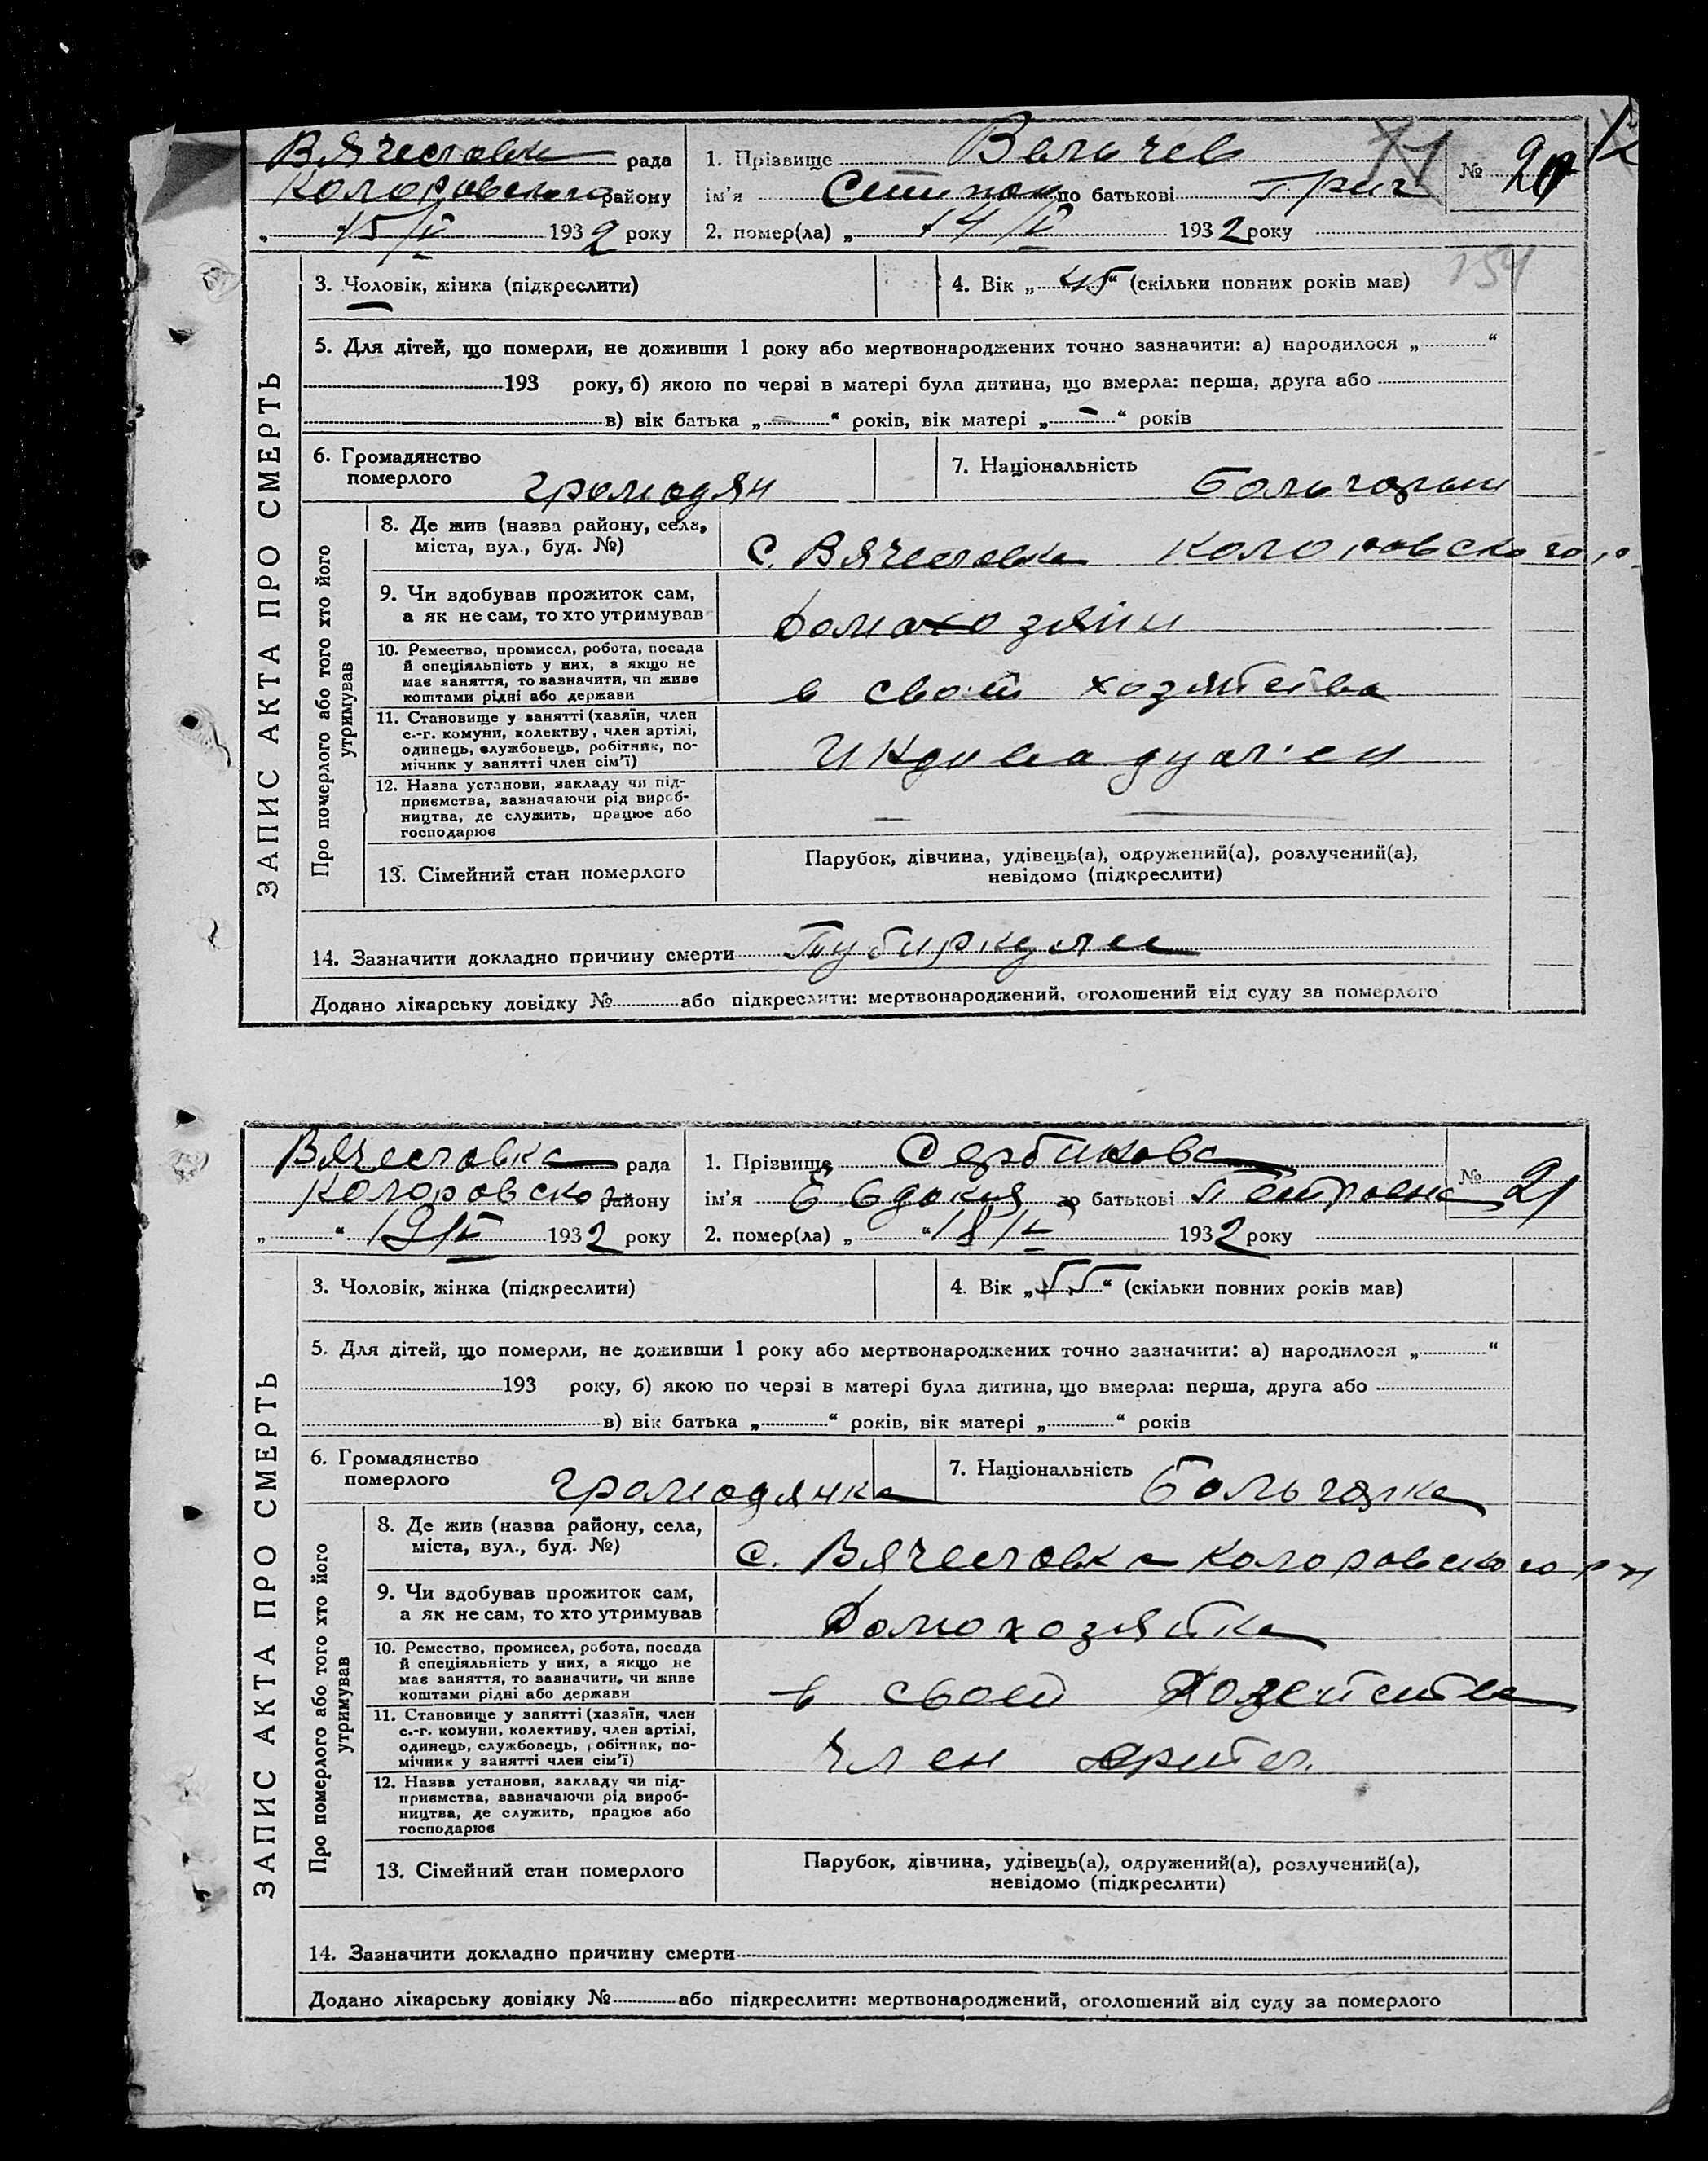 Вячеславка рада
Колоровского району
15/V 1932 року
1. Прізвище Вальчев
ім'я Степан по батькові Григ
2. помер(ла) „ 14/V 1932 року
№ 20
154
ЗАПИС АКТА ПРО СМЕРТЬ
3. Чоловік, жінка (підкреслити)
4. Вік „45“ (скільки повних років мав)
5. Для дітей, що померли, не доживши 1 року або мертвонароджених точно зазначити: а) народилося „ “
193 року, б) якою по черзі в матері була дитина, що вмерла: перша, друга або
в) вік батька „ – “ років, вік матері „ – “ років
6. Громадянство
померлого громодян
7. Національність Больгарын
Про померлого або того хто його
утримував
8. Де жив (назва району, села,
міста, вул., буд. №)
с. Вячеславка Колоровского р.
9. Чи здобував прожиток сам,
а як не сам, то хто утримував
Домохозяин
10. Ремество, промисел, робота, посада
й спеціяльність у них, а якщо не
має заняття, то зазначити, чи живе
коштами рідні або держави
в своем хозяйства
11. Становище у занятті (хазяїн, член
с.-г. комуни, колектву, член артілі,
одинець, службовець, робітник, по-
мічник у занятті член сім'ї)
12. Назва установи, закладу чи під-
приємства, зазначаючи рід вироб-
ництва, де служить, працює або
господарює
13. Сімейний стан померлого
Парубок, дівчина, удівець(а), одружений(а), розлучений(а),
невідомо (підкреслити)
14. Зазначити докладно причину смерти
Додано лікарську довідку № або підкреслити: мертвонароджений, оголошений від суду за померлого
Вячеславка рада
Колоровског району
„ “ 19/V 1932 року
1. Прізвище Сербинова
ім'я Евдокия по батькові Петровна
2. помер(ла) „ “ 18/V 1932 року
№ 21
ЗАПИС АКТА ПРО СМЕРТЬ
3. Чоловік, жінка (підкреслити)
4. Вік „55“ (скільки повних років мав)
5. Для дітей, що померли, не доживши 1 року або мертвонароджених точно зазначити: а) народилося „ “
193 року, б) якою по черзі в матері була дитина, що вмерла: перша, друга або
в) вік батька „ “ років, вік матері „ “ років
6. Громадянство
померлого громодянка
7. Національність Больгарка
Про померлого або того хто його
утримував
8. Де жив (назва району, села,
міста, вул., буд. №)
с. Вячеславка Колоровского р-н
9. Чи здобував прожиток сам,
а як не сам, то хто утримував
Домохозяйка
10. Ремество, промисел, робота, посада
й спеціяльність у них, а якщо не
має заняття, то зазначити, чи живе
коштами рідні або держави
в своей
11. Становище у занятті (хазяїн, член
с.-г. комуни, колективу, член артілі,
одинець, службовець, робітник, по-
мічник у занятті член сім'ї)
Член артел.
12. Назва установи, закладу чи під-
приємства, зазначаючи рід вироб-
ництва, де служить, працює або
господарює
13. Сімейний стан померлого
Парубок, дівчина, удівець(а), одружений(а), розлучений(а),
невідомо (підкреслити)
14. Зазначити докладно причину смерти
Додано лікарську довідку № або підкреслити: мертвонароджений, оголошений від суду за померлого